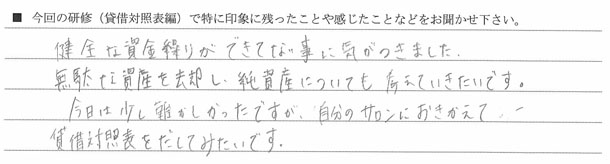 ■ 今回の研修（貸借対照表編）で特に印象に残ったことや感じたことなどをお聞かせ下さい。
健全な資金繰りができてない事に気がつきました。
無駄な資産を去却し、純資産についても考えていきたいです。
今日は少し難かしかったですが、自分のサロンにおきかえて…
貸借対照表をだしてみたいです。